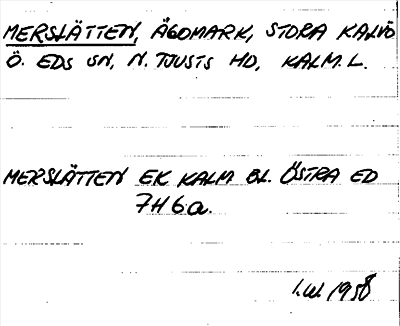 MERSLÄTTEN, ÄGOMARK, STORA KALVÖ
Ö. EDS SN, N. TJUSTS HD, KALM. L.
MERSLÄTTEN EK KALM BL. ÖSTRA ED
7H6a.
I.W. 1958